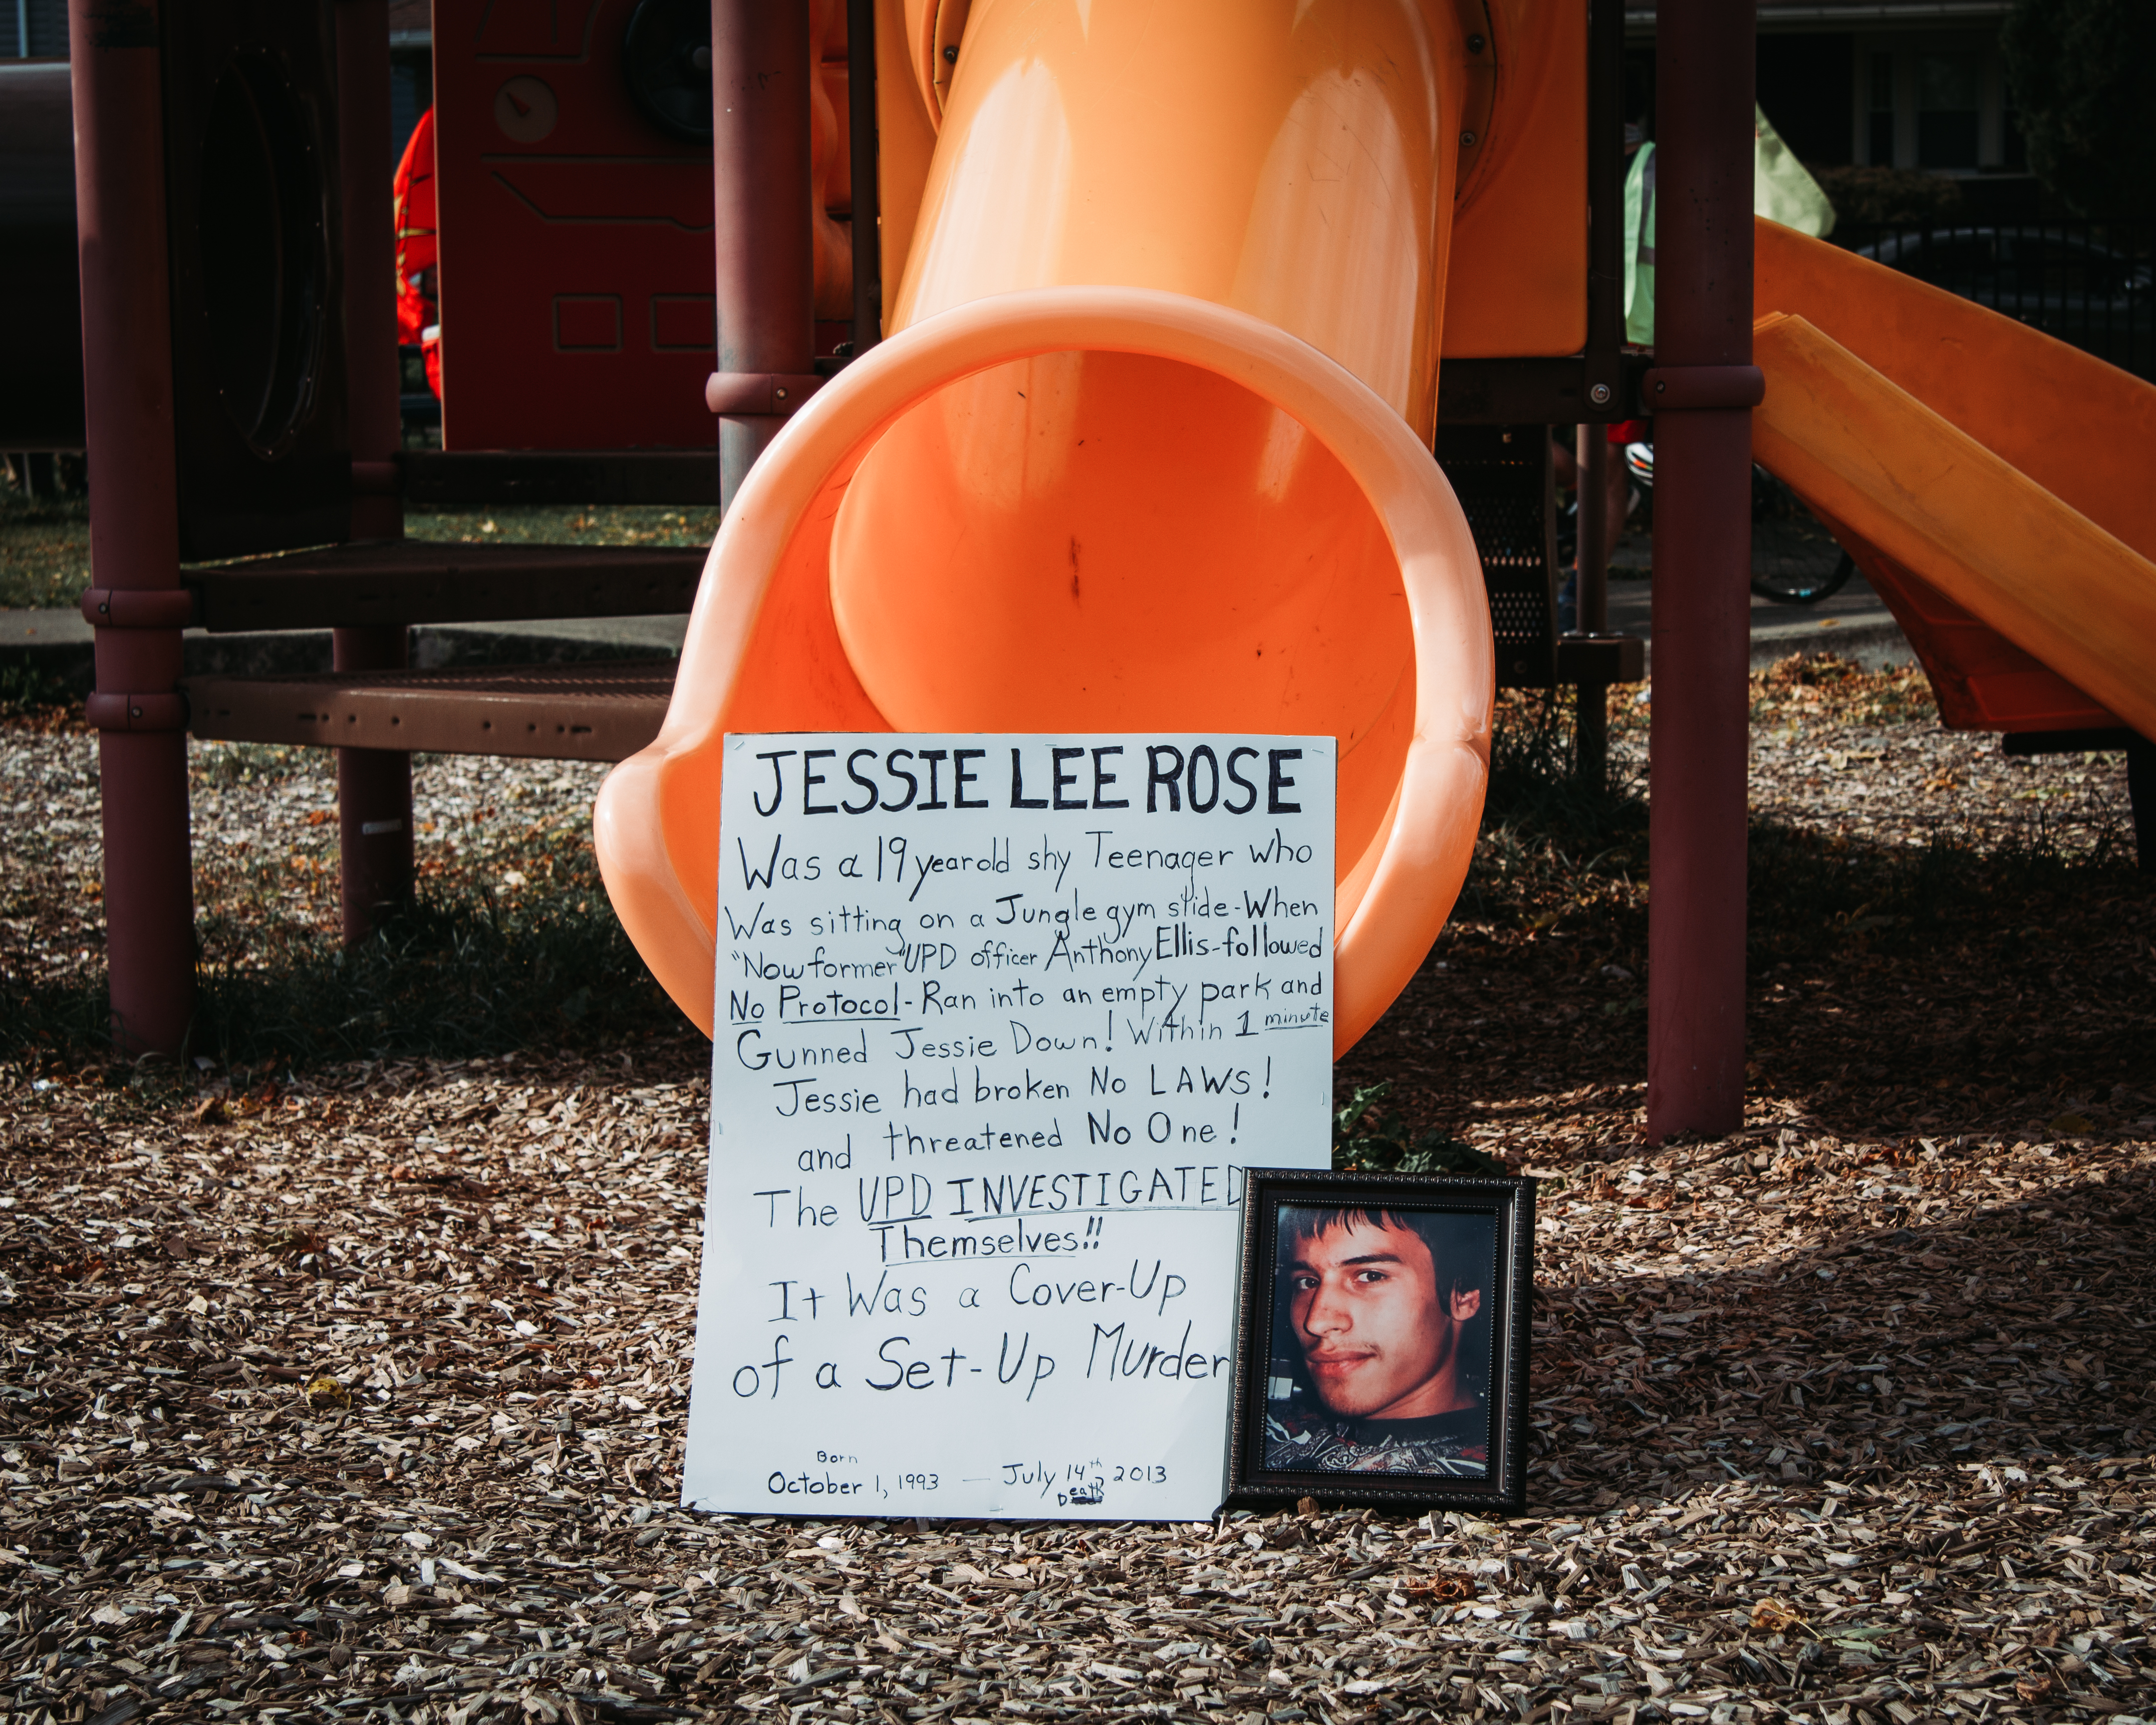 JESSIE LEE ROSE
Was a 19 year old shy Teenager who
Was sitting on a Jungle gym slide-When
"Now former" UPD officer Anthony Ellis-followed
No Protocol-Ran into an empty park and
Gunned Jessie Down! Within 1 minute
Jessie had broken No LAWS!
and threatened No One!
The UPD INVESTIGATED
Themselves!!
It Was a Cover-Up
of a Set-Up Murder
Born
October 1, 1993 — July 14th 2013
Death